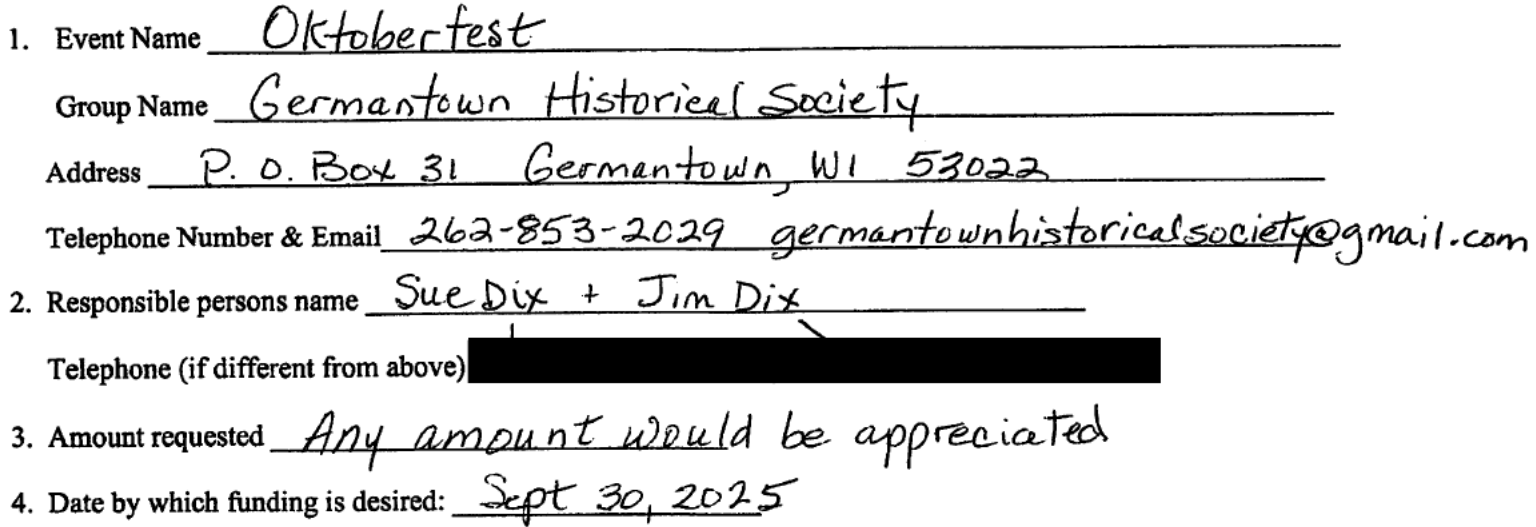 1. Event Name Oktoberfest
Group Name Germantown Historical Society
Address P. O. Box 31 Germantown, WI 53022
Telephone Number & Email 262-853-2029 germantownhistoricalsociety@gmail.com
2. Responsible persons name Sue Dix + Jim Dix
Telephone (if different from above)
3. Amount requested Any amount would be appreciated
4. Date by which funding is desired: Sept 30, 2025